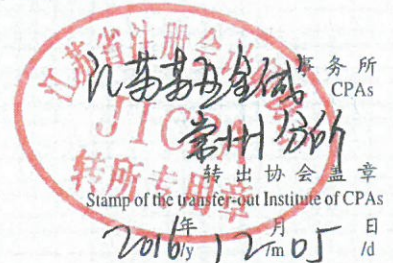 江苏省注册会计师协会
JICPA
转所专用章
江苏苏亚金诚 事务所
CPAs
常州分所
转出协会盖章
Stamp of the transfer-out Institute of CPAs
2016年/y 12月/m 05日/d